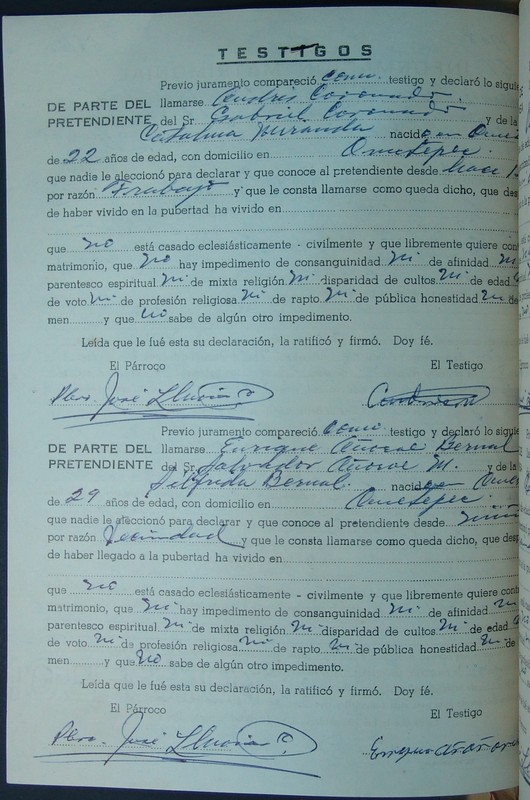 TESTIGOS
Previo juramento compareció como testigo y declaró lo siguie
DE PARTE DEL llamarse Andrés Coronado.
PRETENDIENTE, del Sr. Gabriel Coronado y de la
Catalina Miranda nacido en Ome
de 22 años de edad, con domicilio en Ometepec.
que nadie le aleccionó para declarar y que conoce al pretendiente desde hace
por razón Trabajo y que le consta llamarse como queda dicho, que des
de haber vivido en la pubertad ha vivido en
que no está casado eclesiásticamente - civilmente y que libremente quiere con
matrimonio, que no hay impedimento de consanguinidad ni de afinidad ni
parentesco espiritual ni de mixta religión ni disparidad de cultos ni de edad
de voto ni de profesión religiosa ni de rapto ni de pública honestidad ni de
men y que no sabe de algún otro impedimento.
Leída que le fué esta su declaración, la ratificó y firmó. Doy fé.
El Párroco El Testigo
Pbro. José
Previo juramento compareció como testigo y declaró lo siguie
DE PARTE DEL llamarse Enrique Añorve Bernal
PRETENDIENTE del Sr. Salvador Añorve M. y de la
Bernal. nacido en Ome
de 29 años de edad, con domicilio en Ometepec.
que nadie le aleccionó para declarar y que conoce al pretendiente desde
por razón Vecindad y que le consta llamarse como queda dicho, que des
de haber llegado a la pubertad ha vivido en
que no está casado eclesiásticamente - civilmente y que libremente quiere con
matrimonio, que ni hay impedimento de consanguinidad ni de afinidad ni
parentesco espiritual ni de mixta religión ni disparidad de cultos ni de edad
de voto ni de profesión religiosa ni de rapto ni de pública honestidad ni de
men y que no sabe de algún otro impedimento.
Leída que le fué esta su declaración, la ratificó y firmó. Doy fé.
El Párroco El Testigo
Pbro. José